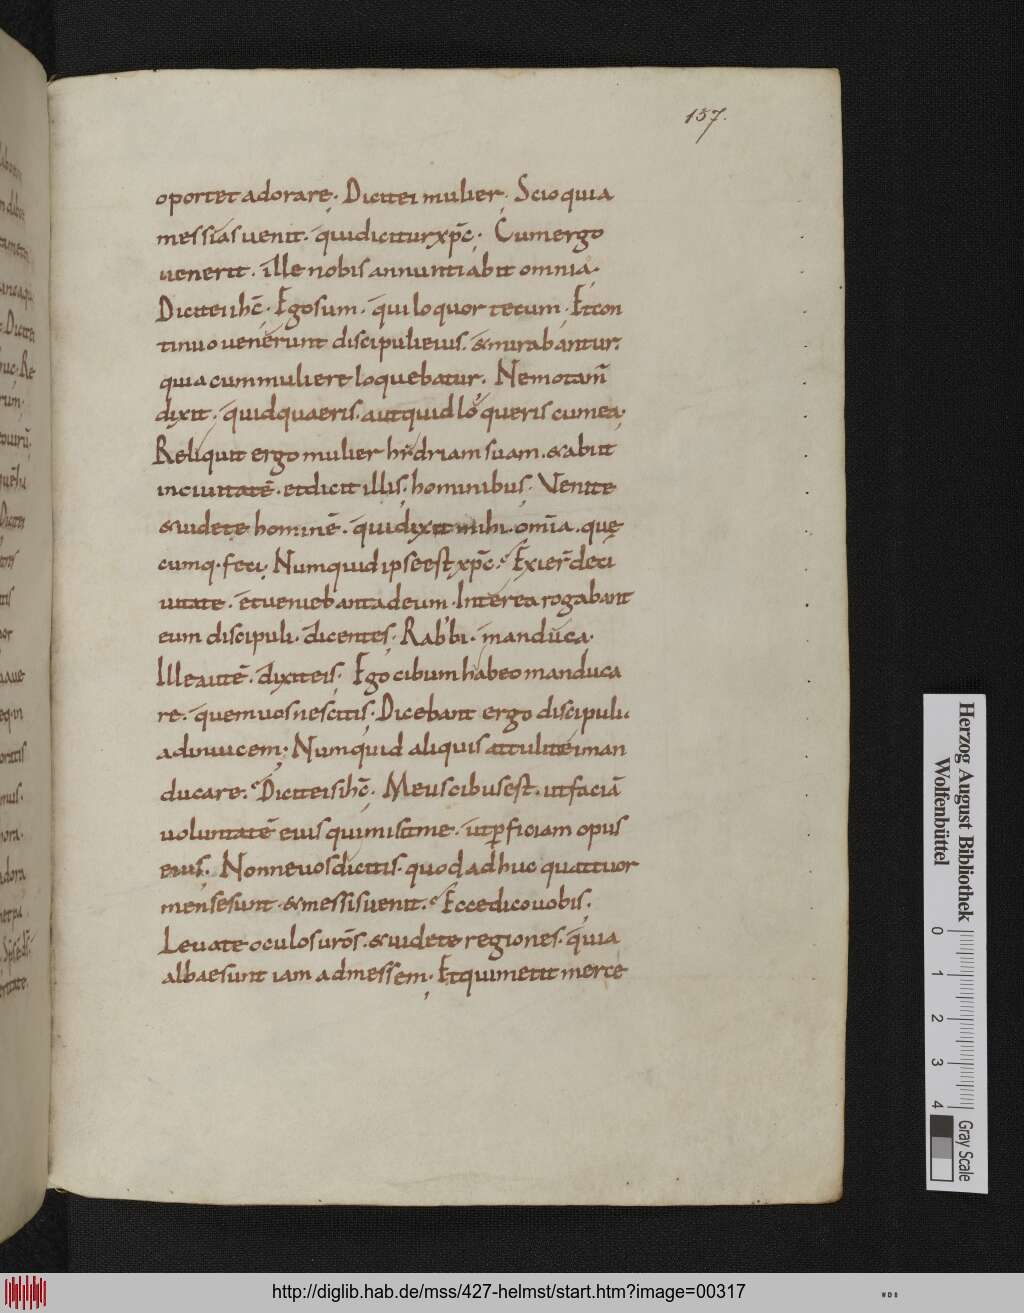 157.
oportet adorare. Dicit ei mulier. Scio quia
messias uenit. qui dicitur xp̄c. Cum ergo
uenerit. ille nobis annuntiabit omnia.
Dicit ei ihc̄. Ego sum. qui loquor tecum. Et con
tinuo uenerunt discipuli eius. & mirabantur.
quia cum muliere loquebatur. Nemo tam̄
dixit. quid quaeris. aut quid loqueris cum ea.
Reliquit ergo mulier hydriam suam. & abiit
in ciuitatē. et dicit illis. hominibus. Venite
& uidete hominē. qui dixit mihi. om̄ia. quę
cumq. feci. Numquid ipse est xp̄c. Exier̄ de ci
uitate. et ueniebant ad eum. Interea rogabant
eum discipuli. dicentes. Rabbi. manduca.
Ille autē. dixit eis. Ego cibum habeo manduca
re. quem uos nescitis. Dicebant ergo discipuli.
adinuicem. Numquid aliquis attulit ei man
ducare. Dicit eis ihc̄. Meus cibus est. ut faciā
uoluntatē eius qui misit me. ut ꝑficiam opus
eius. Nonne uos dicitis. quod adhuc quattuor
menses sunt. & messis uenit. Ecce dico uobis.
Leuate oculos ur̄os. & uidete regiones. quia
albae sunt iam ad messem. Et qui metit merce
Herzog August Bibliothek
Wolfenbüttel
0 1 2 3 4
Gray Scale
http://diglib.hab.de/mss/427-helmst/start.htm?image=00317